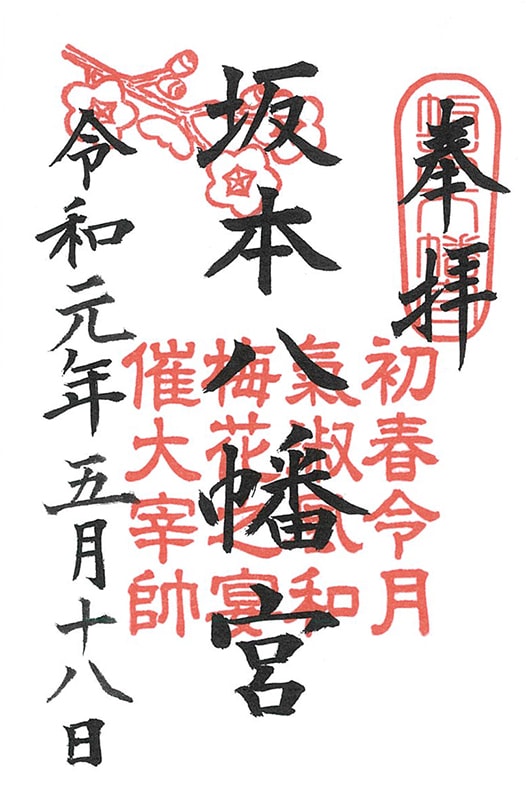 奉拝
坂本八幡宮
初春令月
氣淑風和
梅花之宴
催大宰帥
坂本八幡宮
令和元年五月十八日